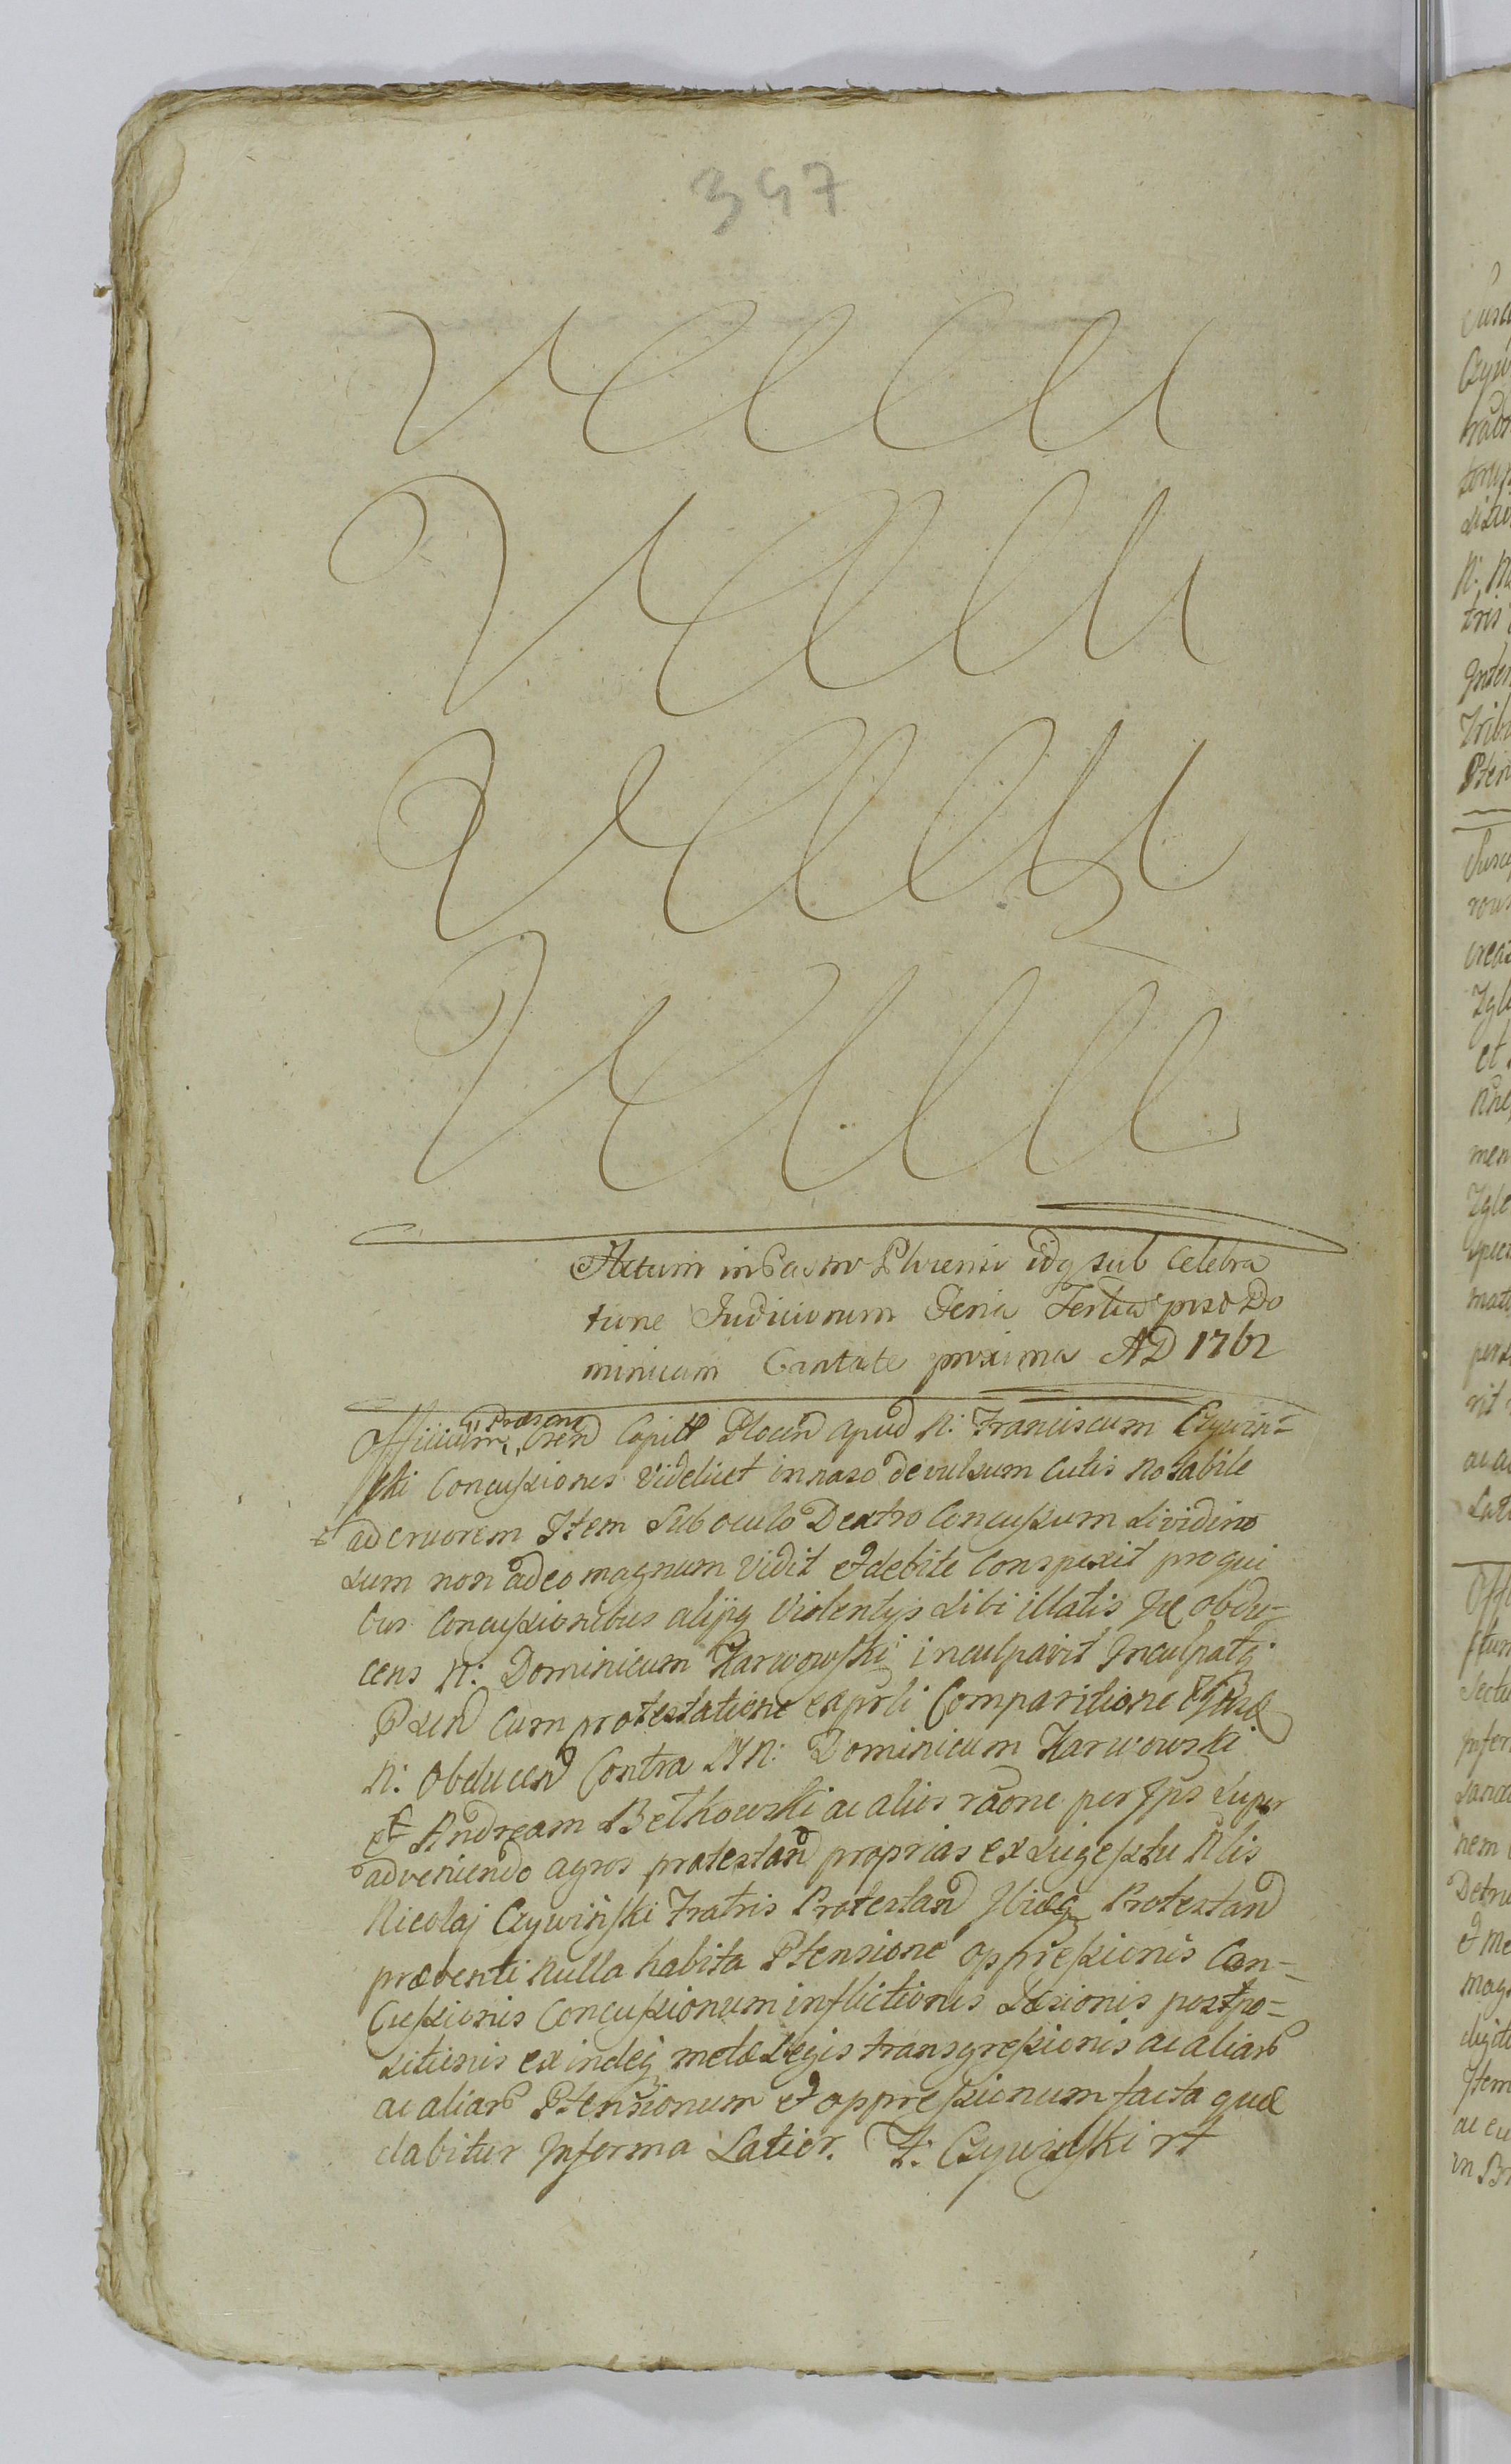 347
Actum in Castro Plocensi idq sub Celebra
tione Iudiciorum Feria Tertia post Do
minicam Cantate proxima AD 1762
Officium et Præsens Cren Capitl Plocen apud N: Franciscum Czywin=
ski Concussiones Videlicet in naso devulsum Cutis notabile
et ad cruorem Item Sub oculo Dextro Concussum Lividino
sum non adeo magnum Vidit et debite Conspexit pro qui
bus Concussionibus alijsq Violentys sibi illatis Je obdu=
cens N: Dominicum Karwowski inculpavit Inculpatq
cum protestatione Comparitione
N: Obducen Contra NN: Dominicum Karwowski
et Andream Betkowski ac alios raone per Ips super
adveniendo agros protestan proprias ex sugestu Nlis
Nicolaj Czywinski Fratris Protestan Ibidq Protestan
præventi Nulla habita Ptensione oppressionis Con=
Cussionis Concussionum inflictionis Læsionis postpo=
sitionis exindeq metæ Legis transgressionis ac aliar
ac aliar Ptensionum et oppressionum facta quæ
dabitur In forma Latior. F: Czywinski rt